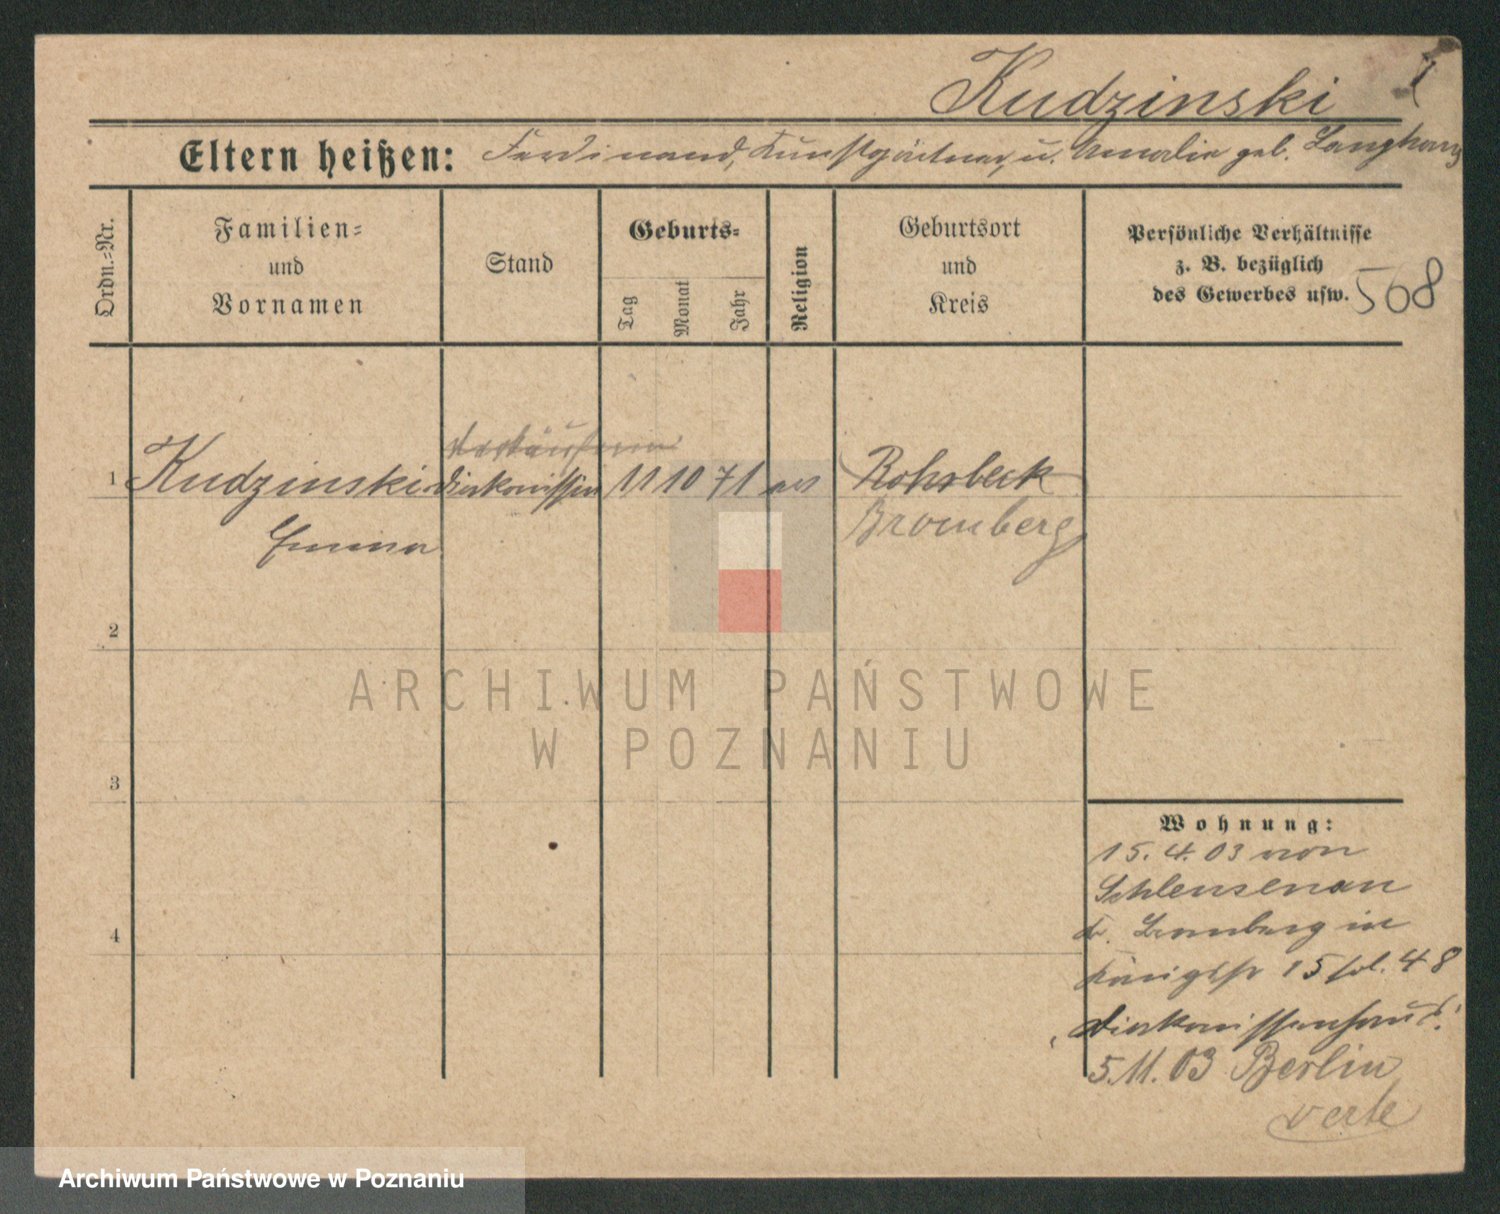 Kudzinski
Eltern heißen: Ferdinand, Kunstgärtner, u. Amalie geb. Langhans
Ordn.-Nr.
Familien-
und
Vornamen
Stand
Geburts-
Tag
Monat
Jahr
Religion
Geburtsort
und
Kreis
Persönliche Verhältnisse
z. B. bezüglich
des Gewerbes usw.
568
Verkäuferin
1 Kudzinski Diakonissin 11 10 71 ev Rohrbeck
Emma Bromberg
2
3
4
Wohnung:
15.4.03 von
Schleusenau
Kr. Bromberg in
Königstr 15 fol. 48
Diakonissenhaus.
5.11.03 Berlin
verte
ARCHIWUM PAŃSTWOWE
W POZNANIU
Archiwum Państwowe w Poznaniu